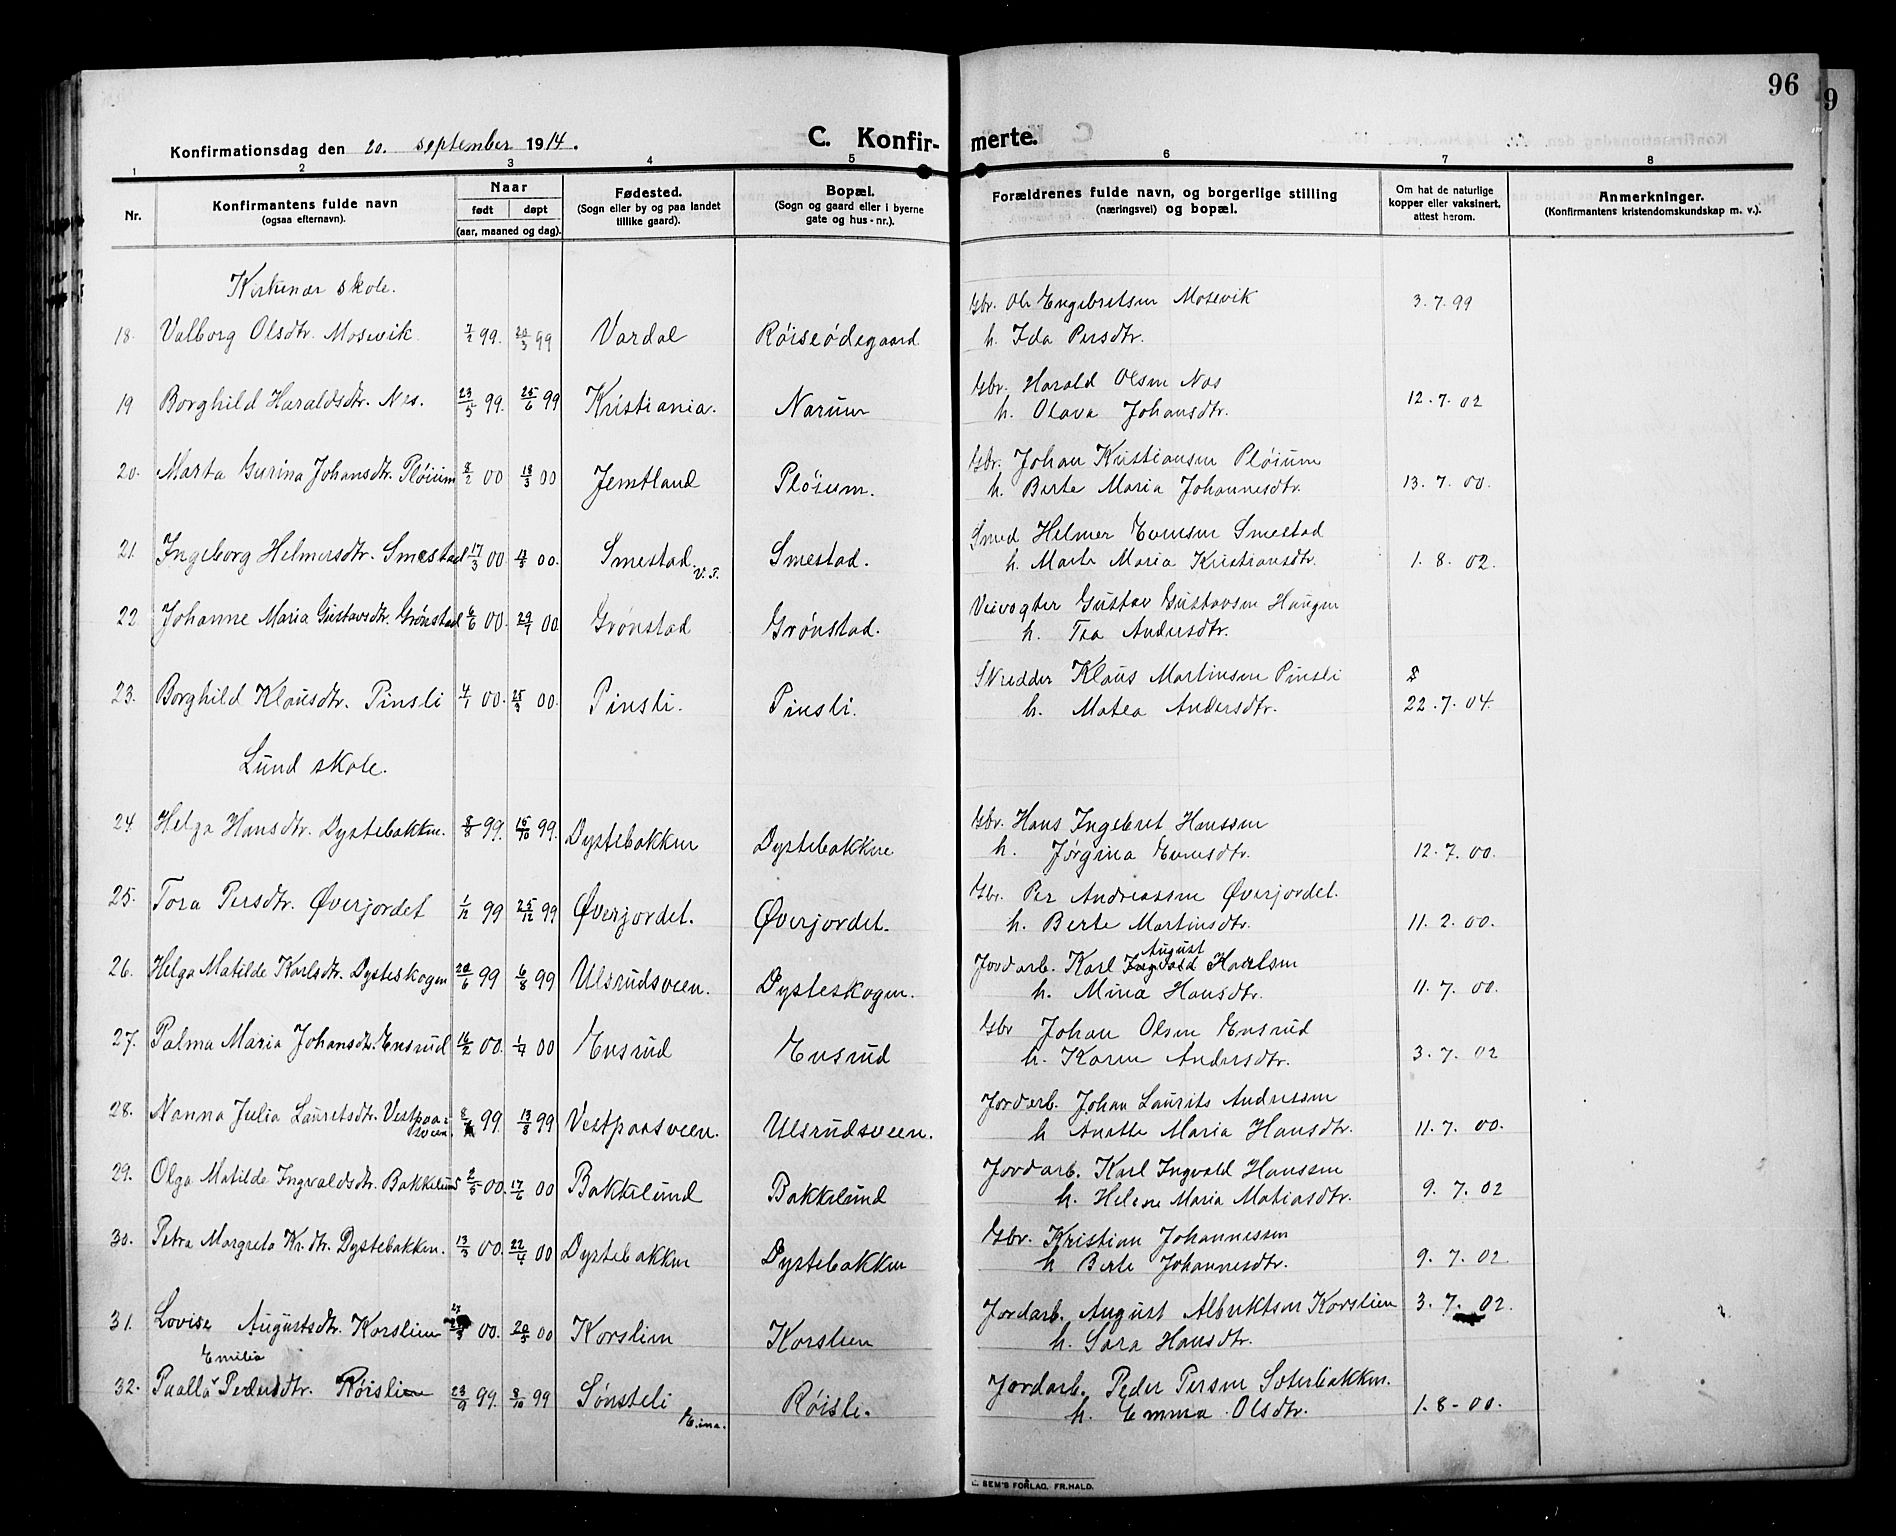 96
9
Konfirmationsdag den 20. september 1914.
C. Konfir-
merte.
1 2 3 4 5 6 7 8
Nr.
Konfirmantens fulde navn
(ogsaa efternavn).
Naar
født døpt
(aar, maaned og dag).
Fødested.
(Sogn eller by og paa landet
tillike gaard).
Bopæl.
(Sogn og gaard eller i byerne
gate og hus-nr.).
Forældrenes fulde navn, og borgerlige stilling
(næringsvei) og bopæl.
Om hat de naturlige
kopper eller vaksinert,
attest herom.
Anmerkninger.
(Konfirmantens kristendomskundskap m. v.).
Kirkenær skole.
18. Valborg Olsdtr. Mosevik 7/2 99. 20/3 99 Vardal Røiseødegaard Gbr. Ole Engebretsen Mosevik 3.7.99
h. Ida Persdtr.
19 Borghild Haraldsdtr. Nes. 23/5 99. 25/6 99 Kristiania. Narum Gbr. Harald Olsen Næs
h. Olava Johansdtr. 12.7.02
20. Marta Gurina Johansdtr. Pløium 8/2 00 18/3 00 Jemtland Pløium. Gbr. Johan Kristiansen Pløium
h. Berte Maria Johannesdtr. 13.7.00.
21. Ingeborg Helmersdtr. Smestad 17/3 00 00. Smestad. V.T. Smestad. Smed Helmer Evensen Smestad
h. Marte Maria Kristiansdtr. 1.8.02.
22 Johanne Maria Gustavsdtr. Grønstad 6/6 00. 29/7 00. Grønstad Grønstad. Veivogter Gustav Gustavsen Haugen
h. Tea Andersdtr.
23. Borghild Klausdtr. Pinsli 4/1 00. 25/3 00. Pinsli. Pinsli. Skredder Klaus Martinsen Pinsli
h. Matea Andersdtr. 22.7.04.
Lund skole.
24 Helga Hansdtr. Dystebakken. 8/8 99. 15/10 99. Dystebakken Dystebakken Gbr. Hans Ingebret Hanssen
h. Jørgina Evensdtr. 12.7.00.
25. Tora Persdtr. Øverjordet 1/12 99 25/12 99 Øverjordet. Øverjordet. Gbr. Per Andreassen Øverjordet.
h. Berte Martinsdtr. 11.2.00.
August
26. Helga Matilde Karlsdtr. Dysteskogen 20/6 99 6/8 99 Ulsrudsveen. Dysteskogen. Jordarb. Karl Ingvald Haralsen
h. Mina Hansdtr. 11.7.00.
27. Palma Maria Johansdtr. Ensrud 16/2 00. 1/4 00 Ensrud Ensrud Gbr Johan Olsen Ensrud
h. Karen Andersdtr. 3.7.02
28. Nanna Julia Lauritsdtr. Vestpaa-
sveen. 99. 13/8 99 Vestpaasveen. Ulsrudsveen. Jordarb. Johan Laurits Andersen
h Anette Maria Hansdtr. 11.7.00.
29. Olga Matilde Ingvaldsdtr. Bakkelund 2/5 00. 17/6 00 Bakkelund Bakkelund Jordarb. Karl Ingvald Hanssen
h. Helene Maria Matiasdtr. 9.7.02
30. Petra Margrete Kr.dtr. Dystebakken. 13/3 00. 22/4 00 Dystebakken Dystebakken Gbr. Kristian Johannessen
h Berte Johannesdtr. 9.7.02.
31. Lovise Augustsdtr. Korslien 00. 20/5 00 Korslien Korslien Jordarb. August Albrektsen Korslien 3.7.02.
h. Sara Hansdtr.
Emilia
32. Paulla Pedersdtr. Røislien 23/9 99. 8/10 99 Sønsteli Eina. Røisli. Jordarb. Peder Persen Sæterbakken.
h. Emma Olsdtr. 1.8-00.
E. SEM'S FORLAG, FR.HALD.